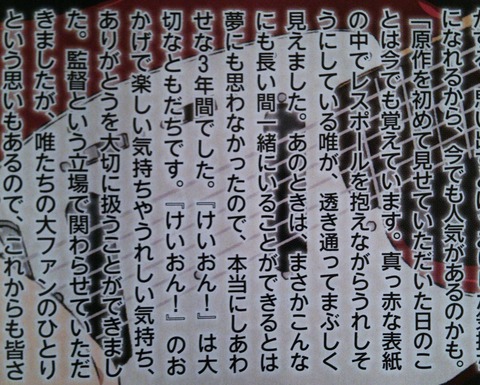 になれるから、今でも人気があるのかも。
「原作を初めて見せていただいた日のこ
とは今でも覚えています。真っ赤な表紙
の中でレスポールを抱えながらうれしそ
うにしている唯が、透き通ってまぶしく
見えました。あのときは、まさかこんな
にも長い間一緒にいることができるとは
夢にも思わなかったので、本当にしあわ
せな3年間でした。『けいおん!』は大
切なともだちです。『けいおん!』のお
かげで楽しい気持ちやうれしい気持ち、
ありがとうを大切に扱うことができまし
た。監督という立場で関わらせていただ
きましたが、唯たちの大ファンのひとり
という思いもあるので、これからも皆さ